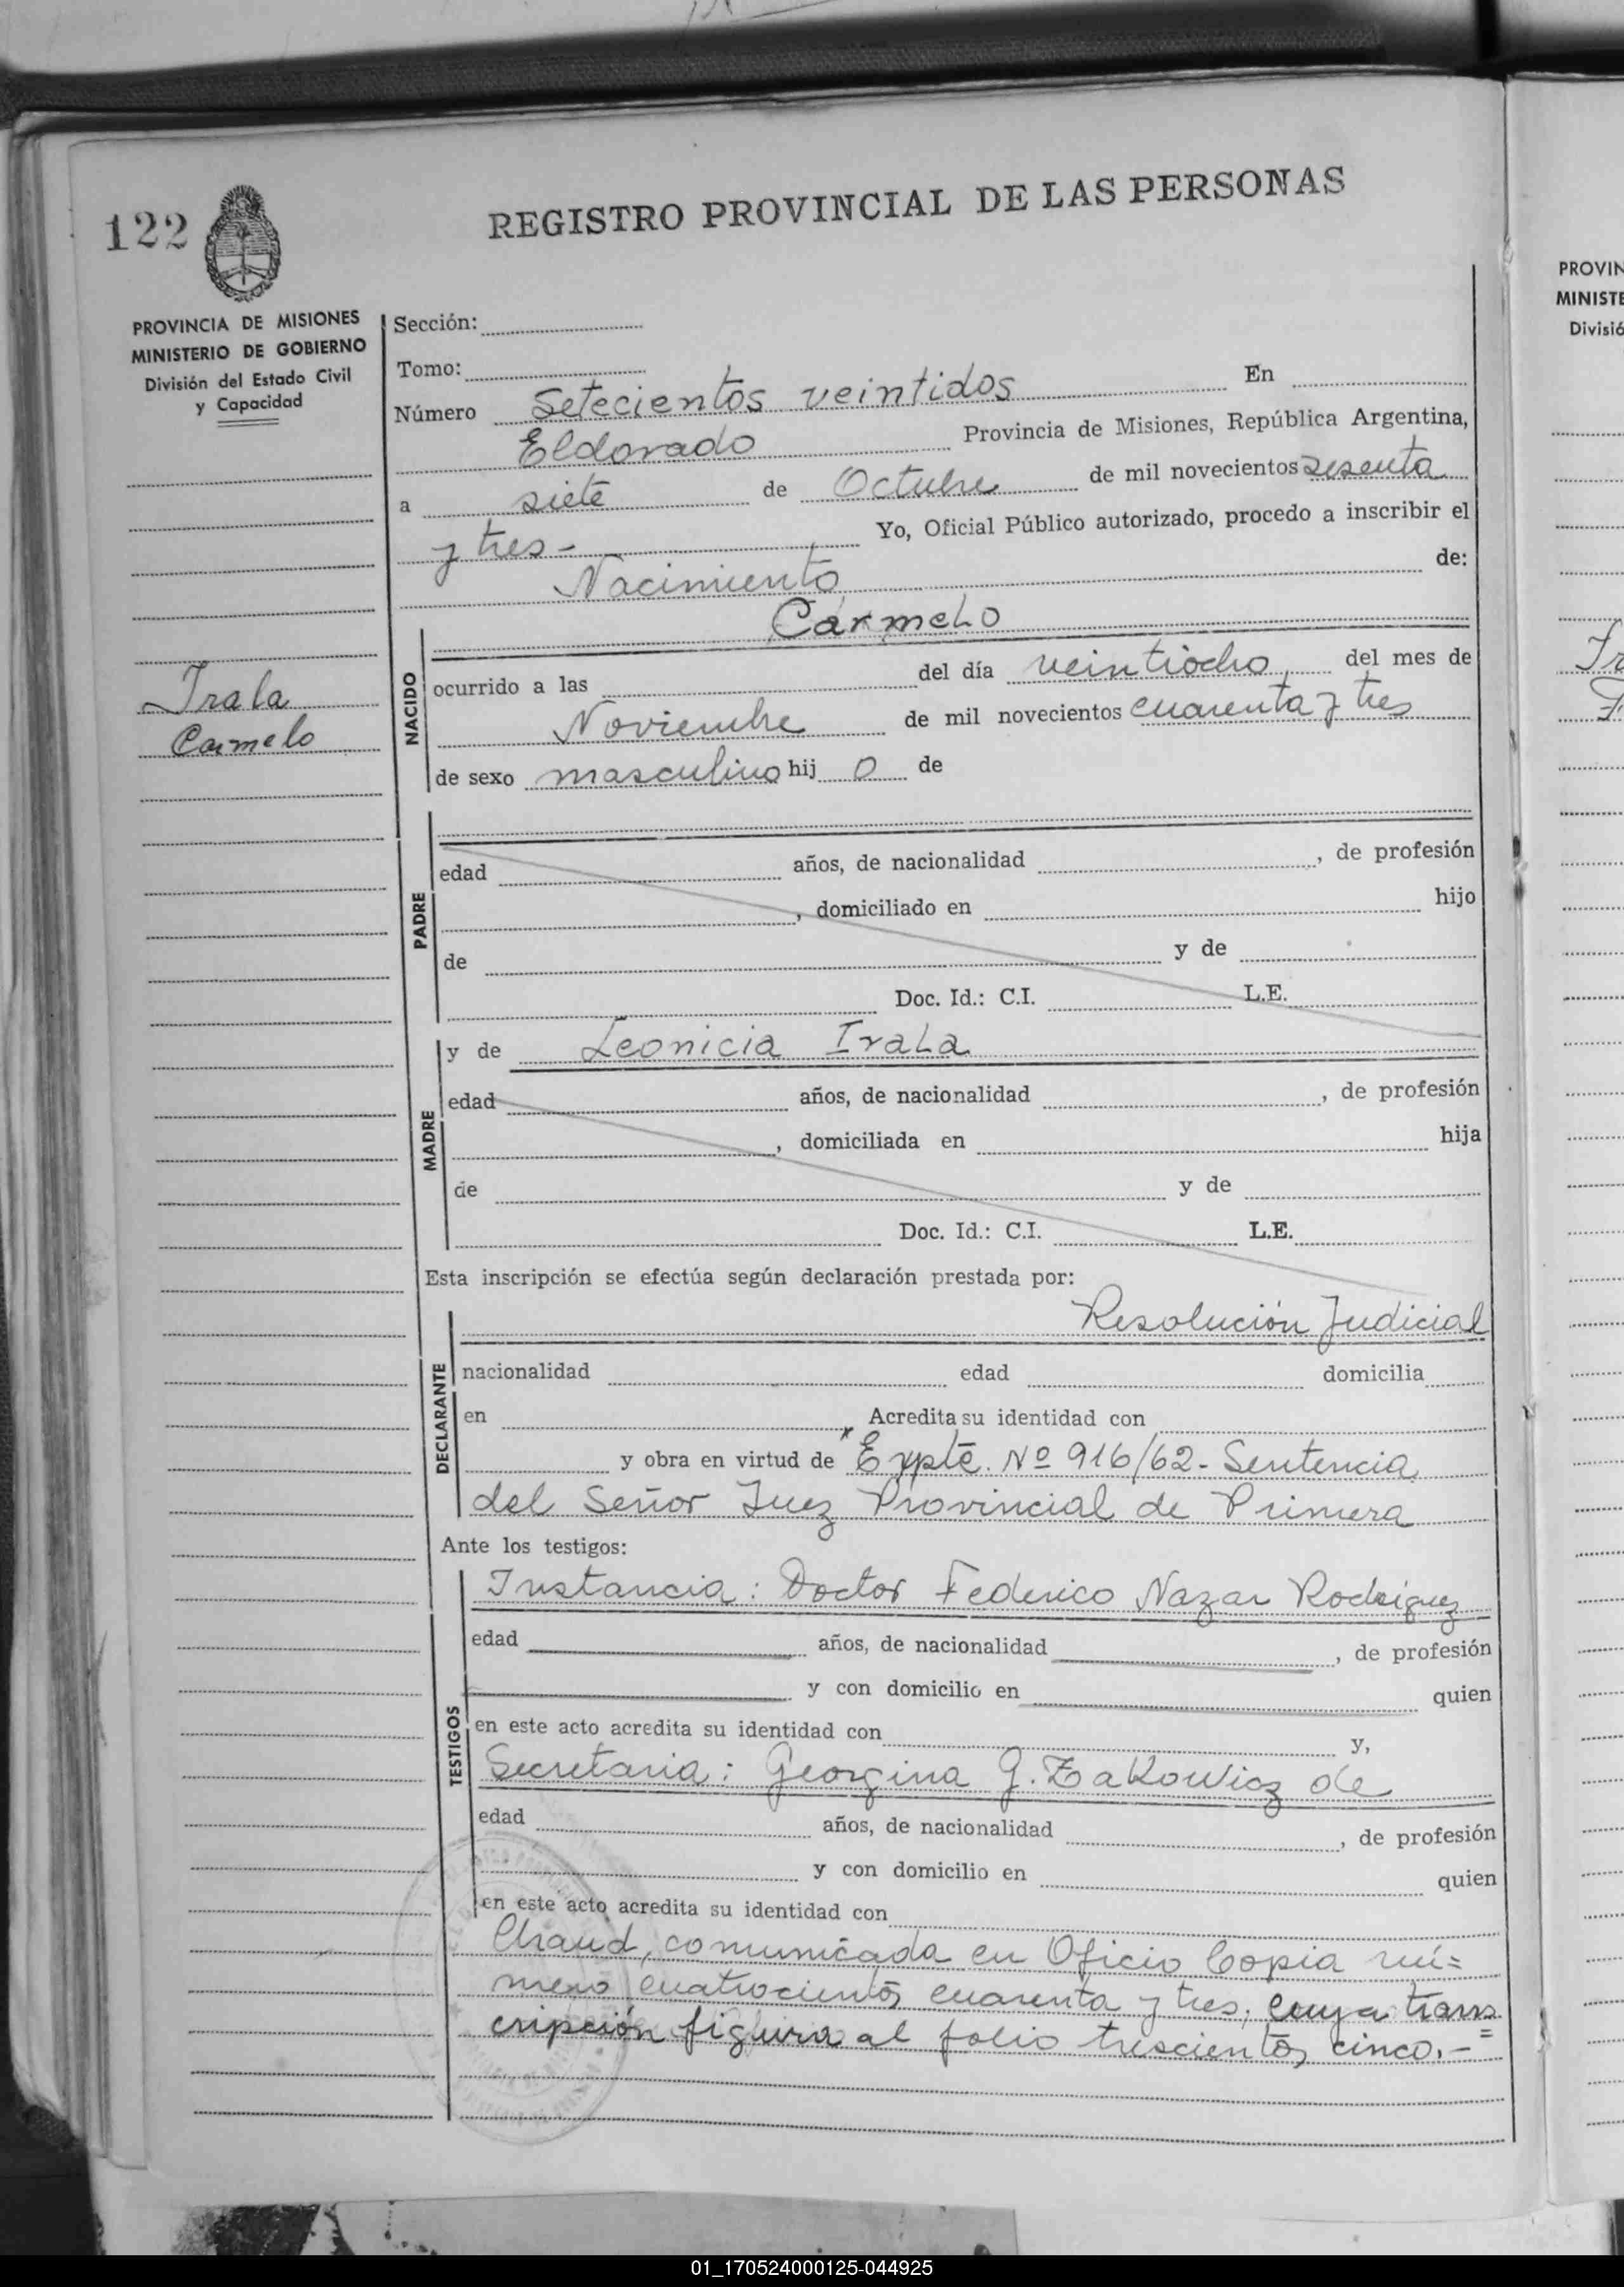 122
REGISTRO PROVINCIAL DE LAS PERSONAS
PROVINCIA DE MISIONES
MINISTERIO DE GOBIERNO
División del Estado Civil
y Capacidad
Irala
Carmelo
Sección:
Tomo:
Número Setecientos veintidos En
Eldorado Provincia de Misiones, República Argentina,
a siete de Octubre de mil novecientos sesenta
y tres - Yo, Oficial Público autorizado, procedo a inscribir el
Nacimiento de:
Carmelo
NACIDO
ocurrido a las del día veintiocho del mes de
Noviembre de mil novecientos cuarenta y tres
de sexo masculino hij o de
PADRE
edad años, de nacionalidad , de profesión
, domiciliado en hijo
de y de
Doc. Id.: C.I. L.E.
MADRE
y de Leonicia Irala
edad años, de nacionalidad , de profesión
, domiciliada en hija
de y de
Doc. Id.: C.I. L.E.
Esta inscripción se efectúa según declaración prestada por:
DECLARANTE
Resolución Judicial
nacionalidad edad domicilia
en Acredita su identidad con
y obra en virtud de Expte. Nº 916/62 - Sentencia
del Señor Juez Provincial de Primera
Ante los testigos:
TESTIGOS
Instancia: Doctor Federico Nazar Rodriguez
edad años, de nacionalidad , de profesión
y con domicilio en quien
en este acto acredita su identidad con y,
Secretaria: Georgina G. Zakowicz de
edad años, de nacionalidad , de profesión
y con domicilio en quien
en este acto acredita su identidad con
Chaud, comunicada en Oficio Copia nú=
mero cuatrocientos cuarenta y tres, cuya trans=
cripción figura al folio trescientos cinco.-
PROVIN
MINISTE
Divisió
Ir
01_170524000125-044925